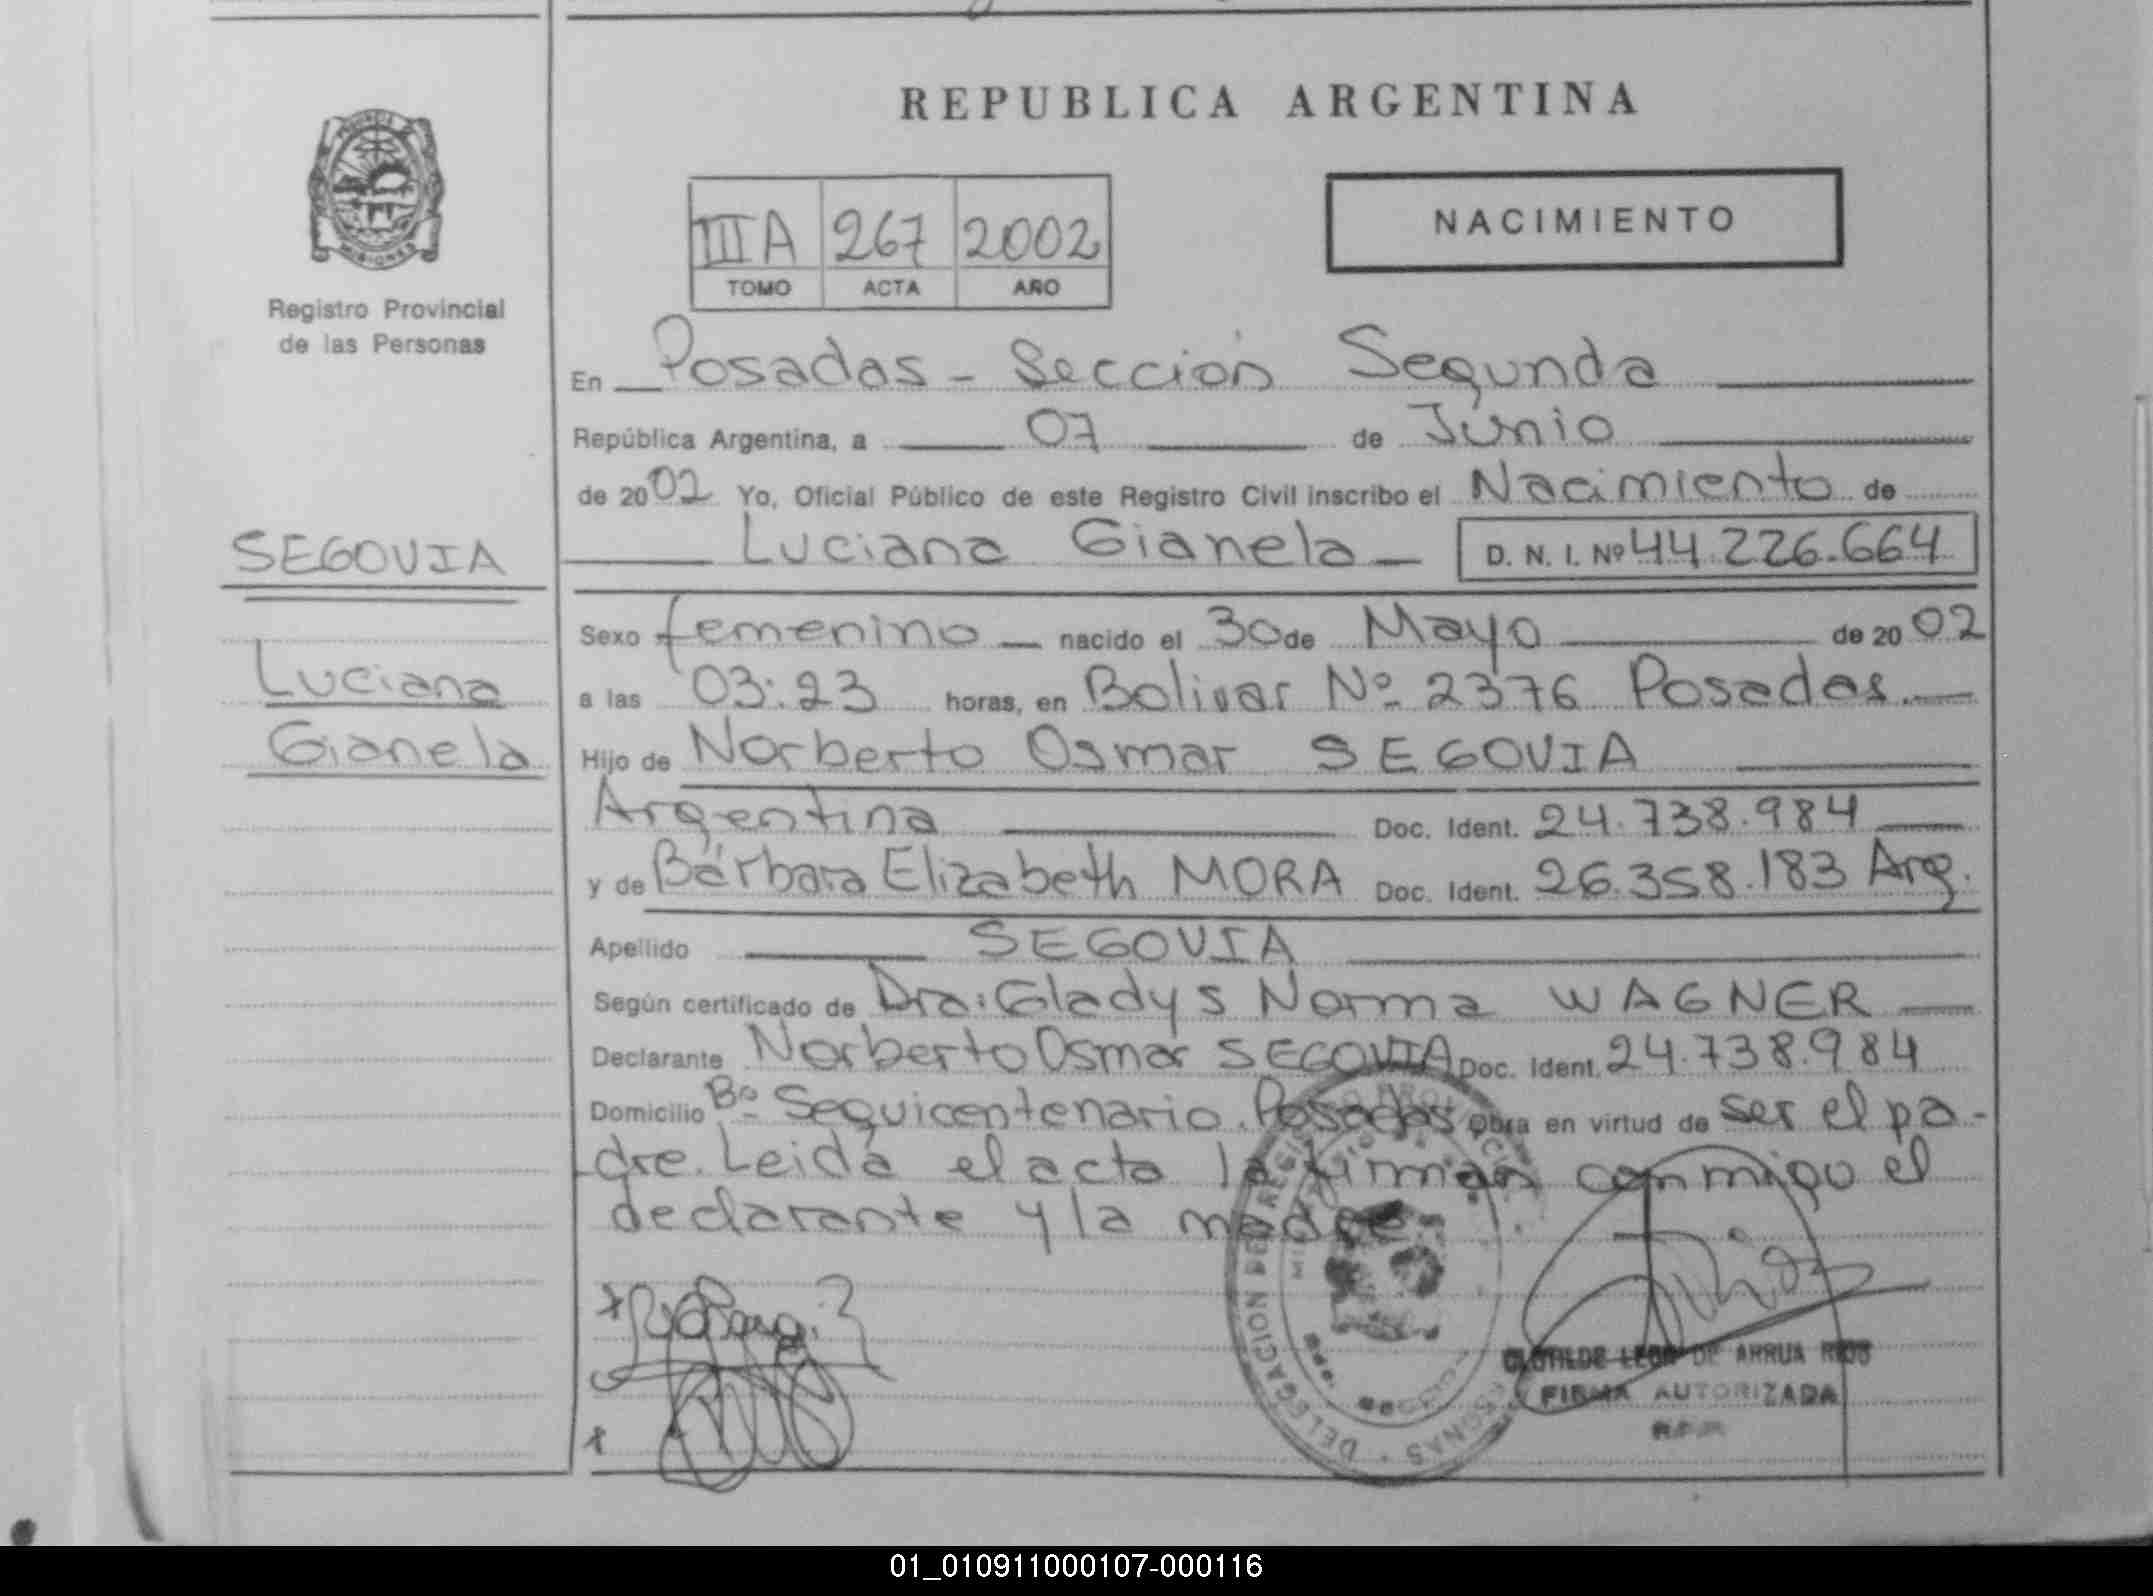 REPUBLICA ARGENTINA
PROVINCIA DE MISIONES
Registro Provincial
de las Personas
III A 267 2002
TOMO ACTA AÑO
NACIMIENTO
En Posadas - Sección Segunda
República Argentina, a 07 de Junio
de 2002 Yo, Oficial Público de este Registro Civil inscribo el Nacimiento de
Luciana Gianela - D. N. I. Nº 44.226.664
SEGOVIA
Luciana
Gianela
Sexo femenino - nacido el 30 de Mayo de 2002
a las 03:23 horas, en Bolivar Nº 2376 Posadas.
Hijo de Norberto Osmar SEGOVIA
Argentina Doc. Ident. 24.738.984
y de Bárbara Elizabeth MORA Doc. Ident. 26.358.183 Arg.
Apellido SEGOVIA
Según certificado de Dra: Gladys Norma WAGNER
Declarante Norberto Osmar SEGOVIA Doc. Ident. 24.738.984
Domicilio Bº Sequicentenario. Posadas Obra en virtud de ser el pa-
dre. Leida el acta la firman conmigo el
declarante y la madre.
DELEGACION DEL REGISTRO PROVINCIAL PERSONAS
CLOTILDE LEON DE ARRUA RIOS
FIRMA AUTORIZADA
01_010911000107-000116